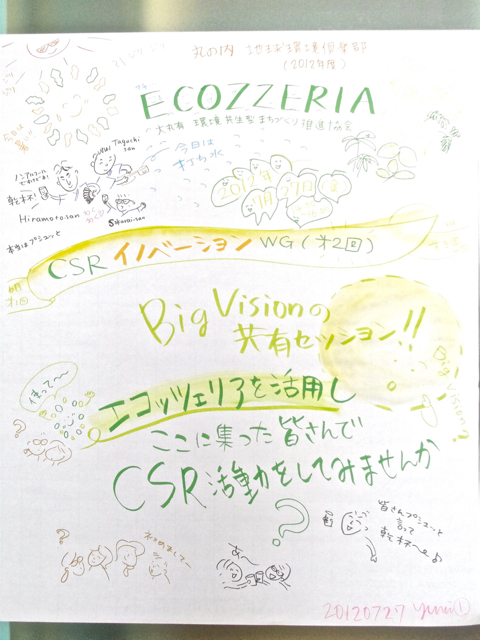 丸の内 地球環境倶楽部
(2012年度)
ECOZZERIA
大丸有 環境共生型まちづくり推進協会
Taguchi
san
今日は
打ち水
乾杯!
Hiramoto san
Sakurai san
本当はプシュッと
2012年
7月27日(金)
CSR イノベーション WG(第2回)
Big Visionの
共有セッション!!
Big Vision
使って〜
エコッツェリアを活用し
ここに集った皆さんで
CSR活動をしてみませんか
?
?
初めまして〜
皆さんプシュッと
言って
乾杯〜♪
20120727 yurii①